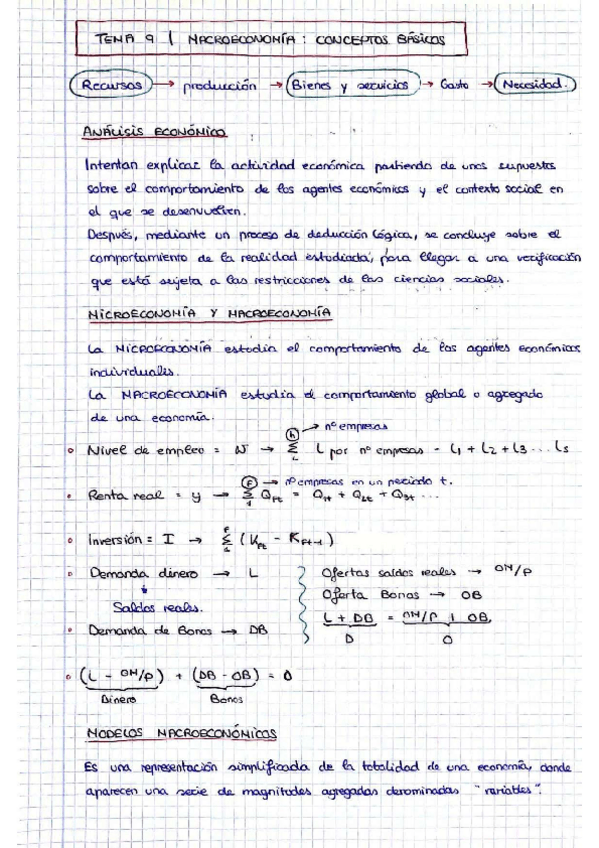 TEMA 9 | MACROECONOMÍA: CONCEPTOS BÁSICOS
Recursos → producción → Bienes y servicios → Gasto → Necesidad.
ANÁLISIS ECONÓMICO
Intentan explicar la actividad económica partiendo de unos supuestos
sobre el comportamiento de los agentes económicos y el contexto social en
el que se desenvuelven.
Después, mediante un proceso de deducción lógica, se concluye sobre el
comportamiento de la realidad estudiada, para llegar a una verificación
que está sujeta a las restricciones de las ciencias sociales.
MICROECONOMÍA Y MACROECONOMÍA
La MICROECONOMÍA estudia el comportamiento de los agentes económicos
individuales.
La MACROECONOMÍA estudia el comportamiento global o agregado
de una economía.
h → nº empresas
Nivel de empleo = N → Σ L por nº empresas = L1 + L2 + L3 ... Ls
F → nº empresas en un periodo t.
Renta real = y → Σ 1 QFt = Q1t + Q2t + Q3t ...
Inversión = I → F Σ 1 (KFt - KFt-1)
Demanda dinero → L
Saldos reales.
Demanda de Bonos → DB
Ofertas saldos reales → OM/P
Oferta Bonos → OB
L + DB = OM/P + OB
D O
(L - OM/P) + (DB - OB) = 0
Dinero Bonos
MODELOS MACROECONÓMICOS
Es una representación simplificada de la totalidad de una economía, donde
aparecen una serie de magnitudes agregadas denominadas "variables".